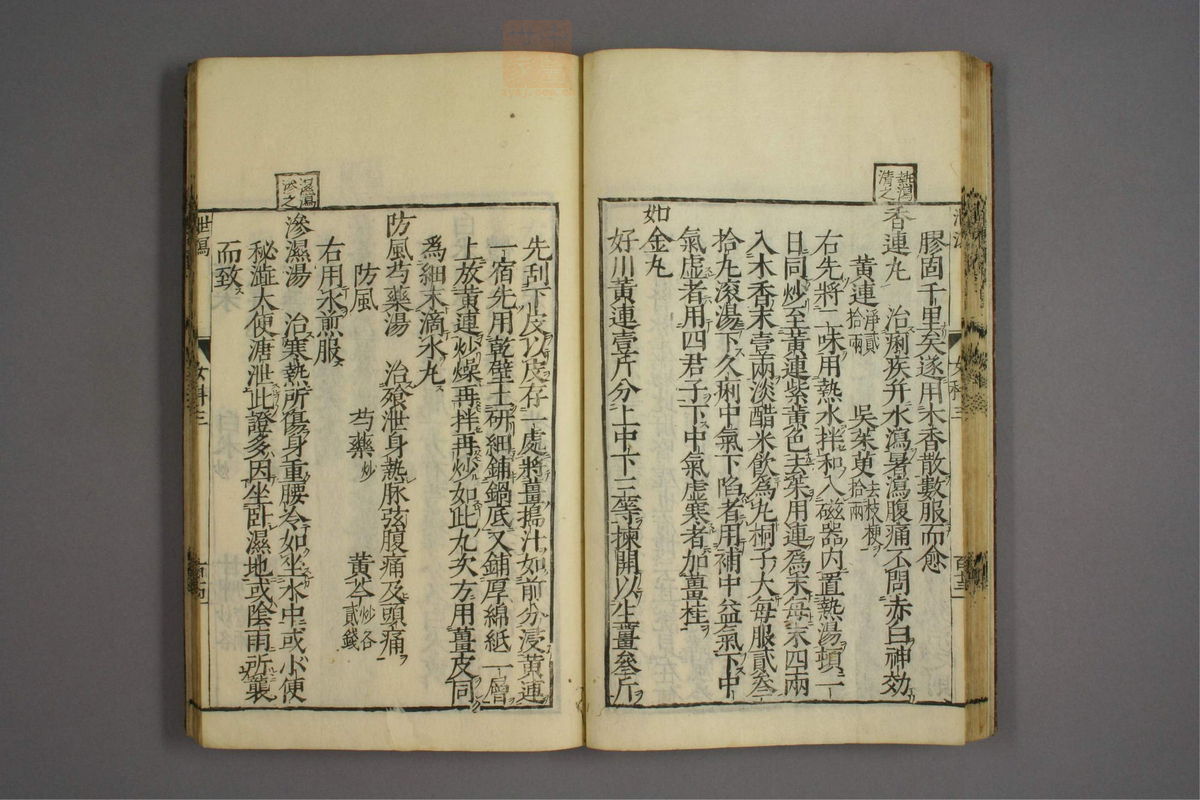 膠固千里矣遂用木香散數服而愈
熱瀉
清之
香連丸 治痢疾并水瀉暑瀉腹痛不問赤白神効
黃連淨貳拾兩 吳茱萸去枝梗拾兩
右先將二味用熱水拌和入磁器内置熱湯頓一
日同炒至黃連紫黃色去茱用連爲末每末四兩
入木香末壹兩淡醋米飲爲丸桐子大每服貳叁
拾丸滾湯下久痢中氣下陷者用補中益氣下中
氣虛者用四君子下中氣虛寒者加薑桂
如金丸
好川黃連壹斤分上中下三等揀開以生薑叁斤
女科三
先刮下皮以皮存一處將薑搗汁如前分浸黃連
一宿先用乾壁土研細鋪鍋底又鋪厚綿紙一層
上放黃連炒燥再拌再炒如此九次方用薑皮同
爲細末滴水丸
防風芍藥湯 治飱泄身熱脉弦腹痛及頭痛
防風 芍藥炒 黃芩炒各貳錢
右用水煎服
濕瀉
滲之
滲濕湯 治寒熱所傷身重腰冷如坐水中或小便
秘澁大便溏泄此證多因坐卧濕地或陰雨所襲
而致
泄瀉
女科三